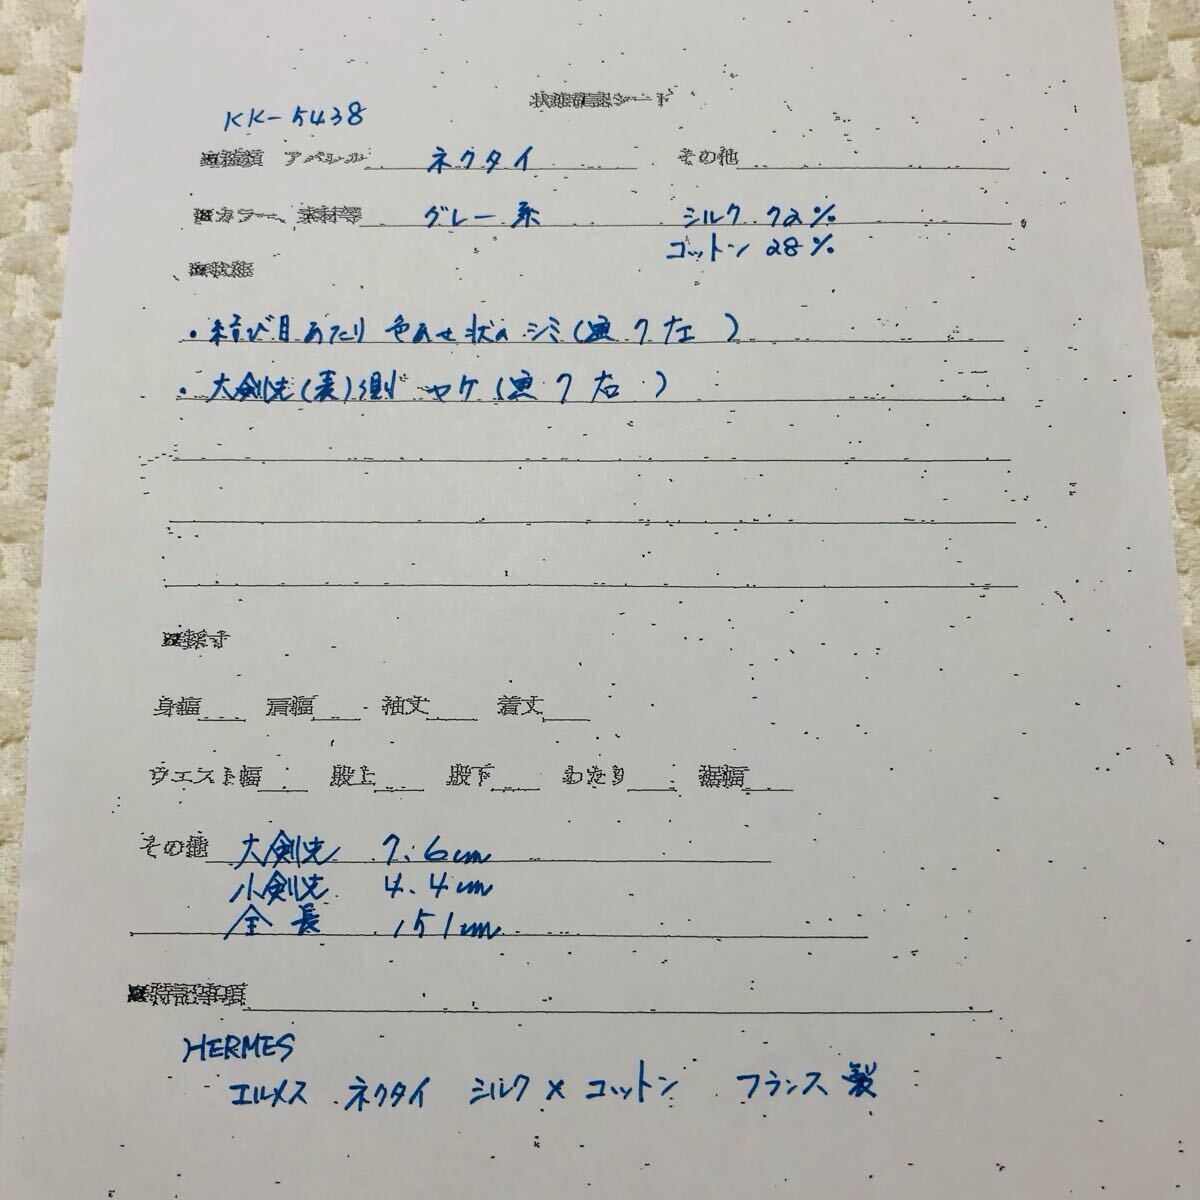 状態確認シート
KK-5438
■種類 アパレル ネクタイ その他
■カラー、素材等 グレー系 シルク 72%
コットン 28%
■状態
・結び目あたり 色あせ状のシミ(画7左)
・大剣先(裏)側 ヤケ(画7右)
■採寸
身幅 肩幅 袖丈 着丈
ウエスト幅 股上 股下 わたり 裾幅
その他 大剣先 7.6cm
小剣先 4.4cm
全長 151cm
■特記事項
HERMES
エルメス ネクタイ シルク×コットン フランス製